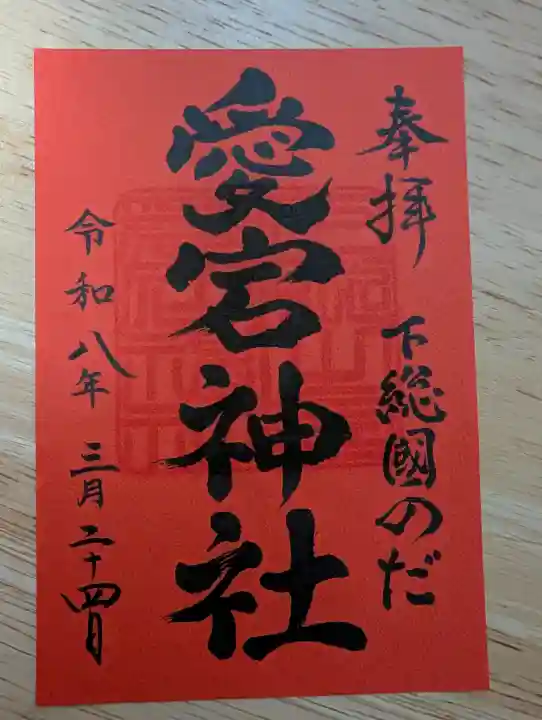 奉拝
下総國のだ
愛宕神社
令和八年 三月二十四日